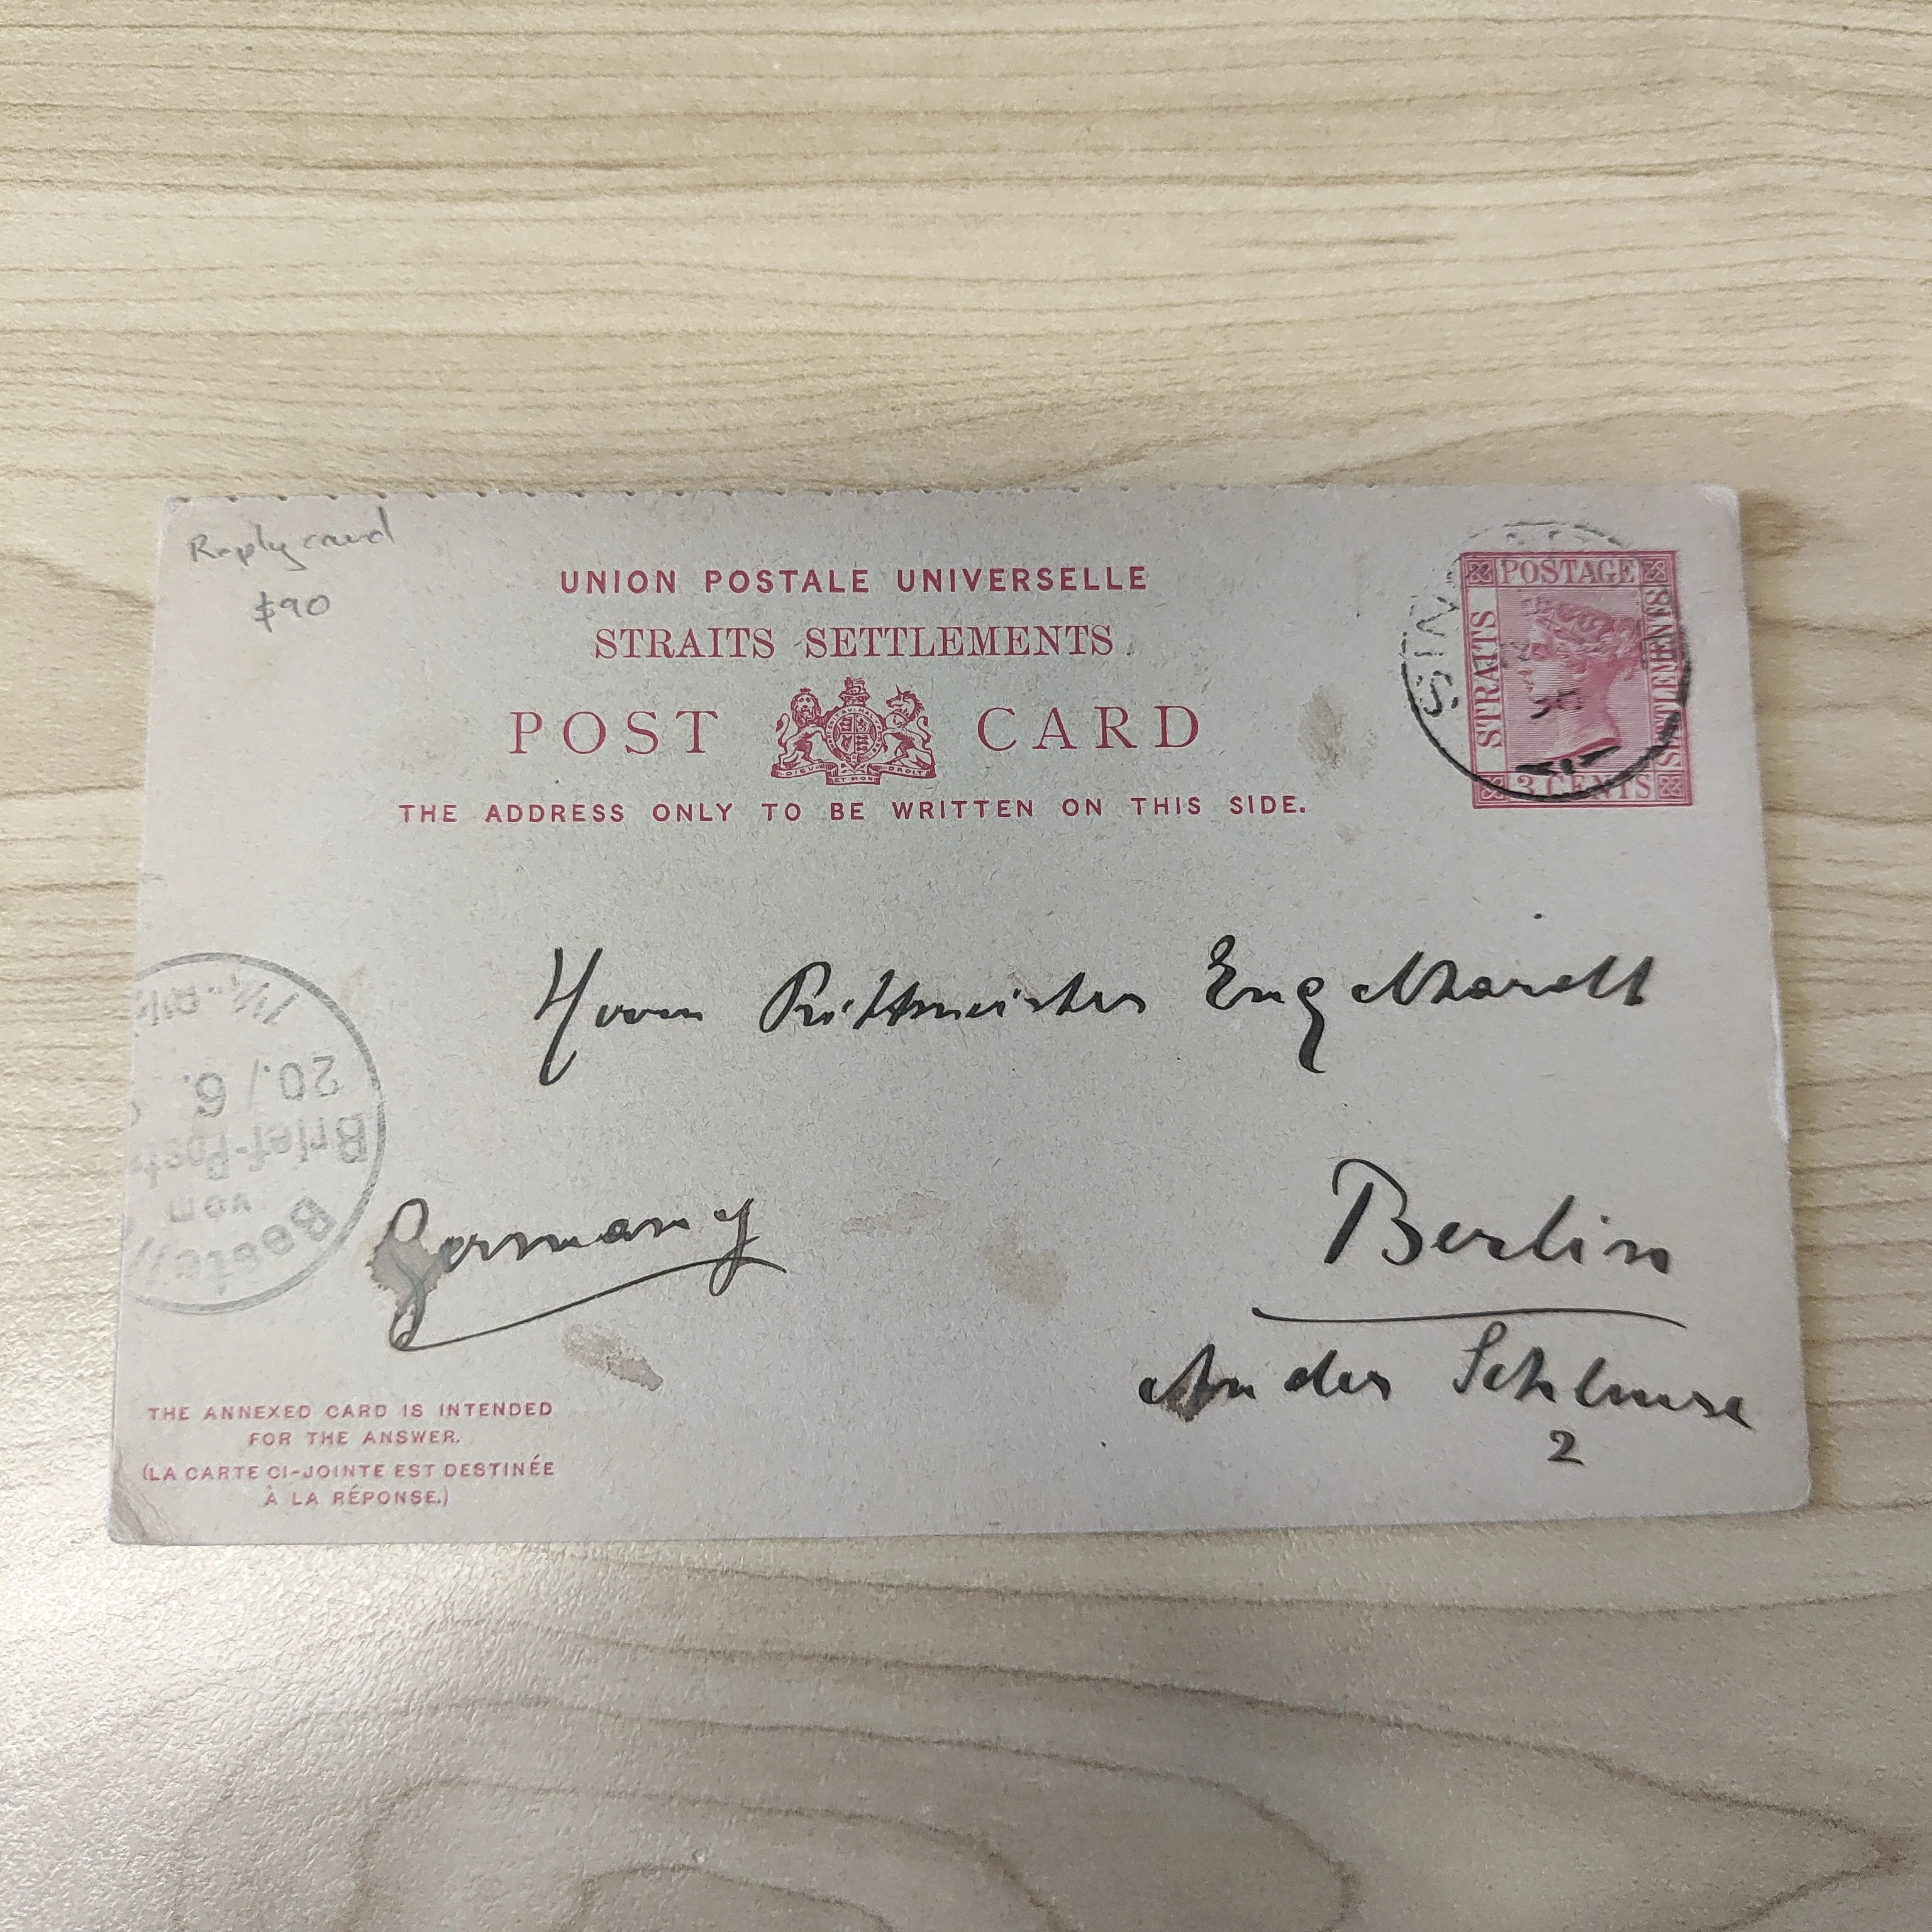 Reply card
$90
UNION POSTALE UNIVERSELLE
STRAITS SETTLEMENTS.
POST CARD
DIEU ET MON DROIT
THE ADDRESS ONLY TO BE WRITTEN ON THIS SIDE.
POSTAGE
STRAITS
SETTLEMENTS
3 CENTS
Herrn Rittmeister Engelhardt
Germany
Berlin
An der Schleuse
2
Bestellt
vom
Brief-Post
20./6.
THE ANNEXED CARD IS INTENDED
FOR THE ANSWER.
(LA CARTE CI-JOINTE EST DESTINÉE
À LA RÉPONSE.)